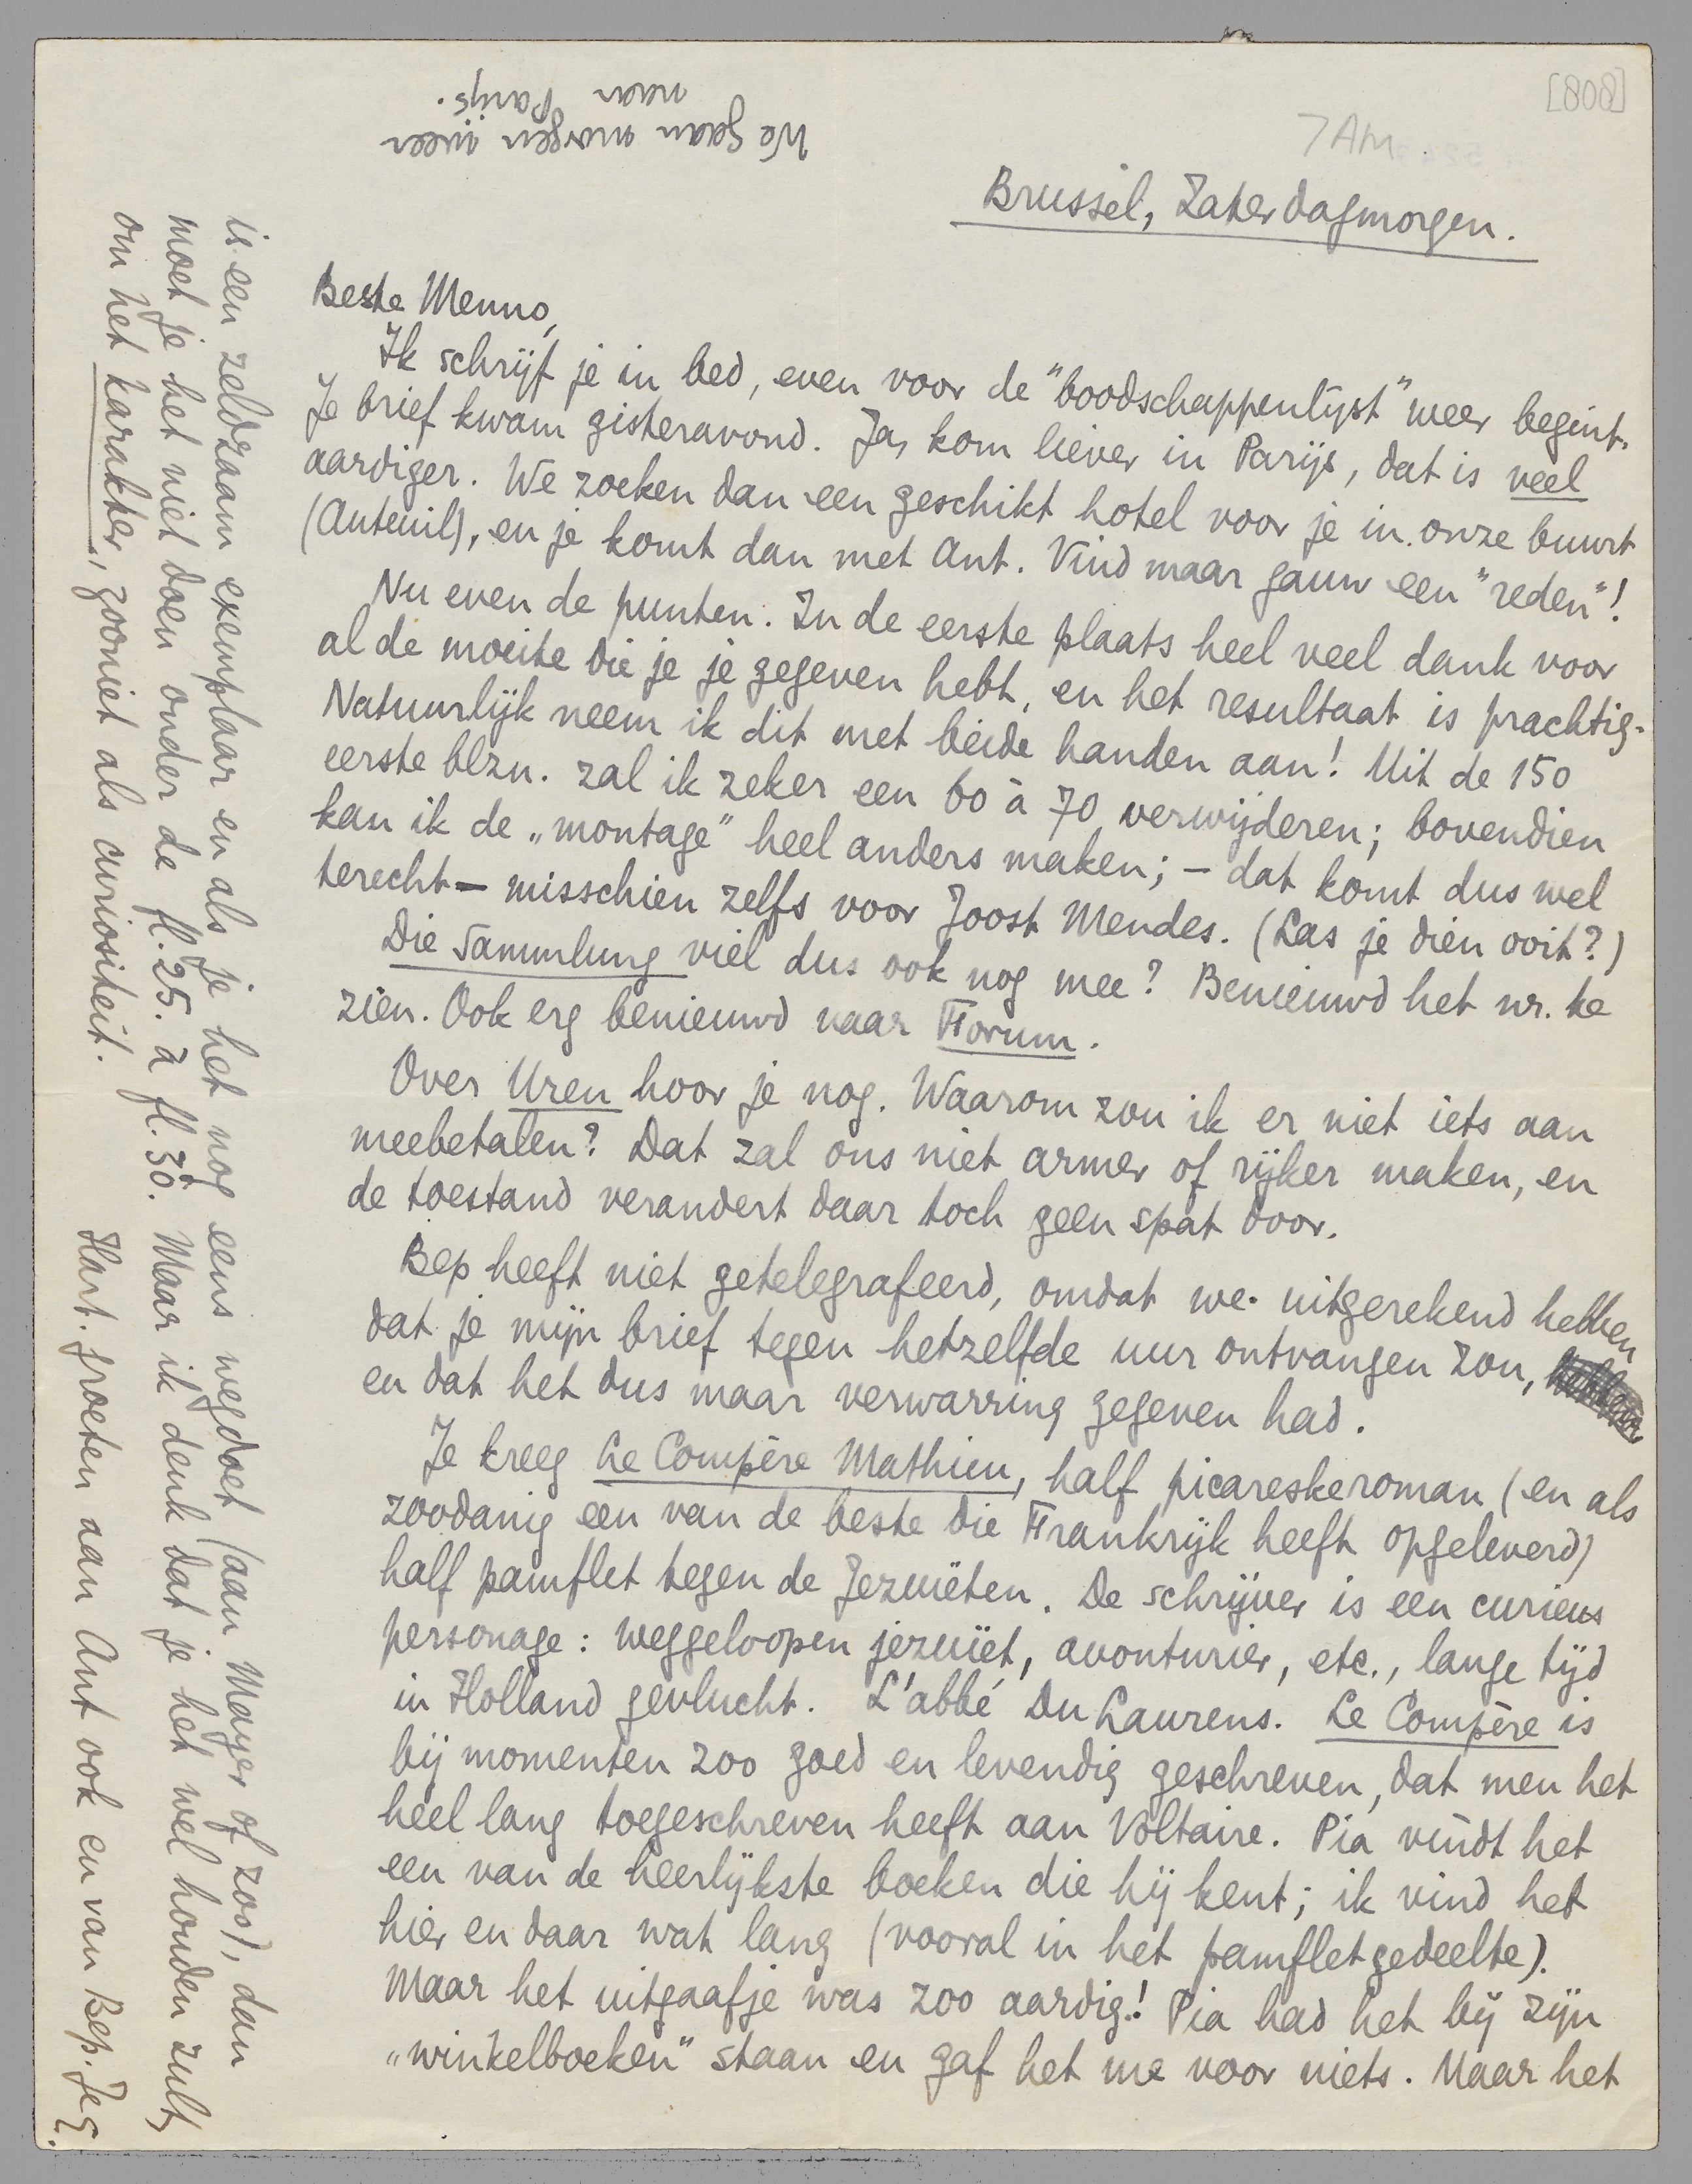 [808]
7 AM
Brussel, Zaterdagmorgen.
Beste Menno,
Ik schrijf je in bed, even voor de "boodschappenlijst" weer begint.
Je brief kwam gisteravond. Ja, kom liever in Parijs, dat is veel
aardiger. We zoeken dan een geschikt hotel voor je in onze buurt
(Auteuil), en je komt dan met Ant. Vind maar gauw een "reden"!
Nu even de punten. In de eerste plaats heel veel dank voor
al de moeite die je je gegeven hebt, en het resultaat is prachtig.
Natuurlijk neem ik dit met beide handen aan! Uit de 150
eerste blzn. zal ik zeker een 60 à 70 verwijderen; bovendien
kan ik de „montage" heel anders maken; – dat komt dus wel
terecht – misschien zelfs voor Joost Mendes. (Las je dien ooit?)
Die Sammlung viel dus ook nog mee? Benieuwd het nr. te
zien. Ook erg benieuwd naar Forum.
Over Uren hoor je nog. Waarom zou ik er niet iets aan
meebetalen? Dat zal ons niet armer of rijker maken, en
de toestand verandert daar toch geen spat door.
Bep heeft niet getelegrafeerd, omdat we uitgerekend hebben
dat je mijn brief tegen hetzelfde uur ontvangen zou,
en dat het dus maar verwarring gegeven had.
Je kreeg Le Compère Mathieu, half picareske roman (en als
zoodanig een van de beste die Frankrijk heeft opgeleverd)
half pamflet tegen de Jezuïeten. De schrijver is een curieus
personage: weggeloopen jezuïet, avonturier, etc., lange tijd
in Holland gevlucht. L'abbé Du Laurens. Le Compère is
bij momenten zoo goed en levendig geschreven, dat men het
heel lang toegeschreven heeft aan Voltaire. Pia vindt het
een van de heerlijkste boeken die hij kent; ik vind het
hier en daar wat lang (vooral in het pamfletgedeelte).
Maar het uitgaafje was zoo aardig! Pia had het bij zijn
„winkelboeken" staan en gaf het me voor niets. Maar het
is een zeldzaam exemplaar en als je het nog eens wegdoet (aan Mayer of zoo), dan
moet je het niet doen onder de fl. 25. à fl. 30. Maar ik denk dat je het wel houden zult,
om het karakter, zooniet als curiositeit.
Hart. groeten aan Ant ook en van Bep. Je E.
We gaan morgen weer
naar Parijs.